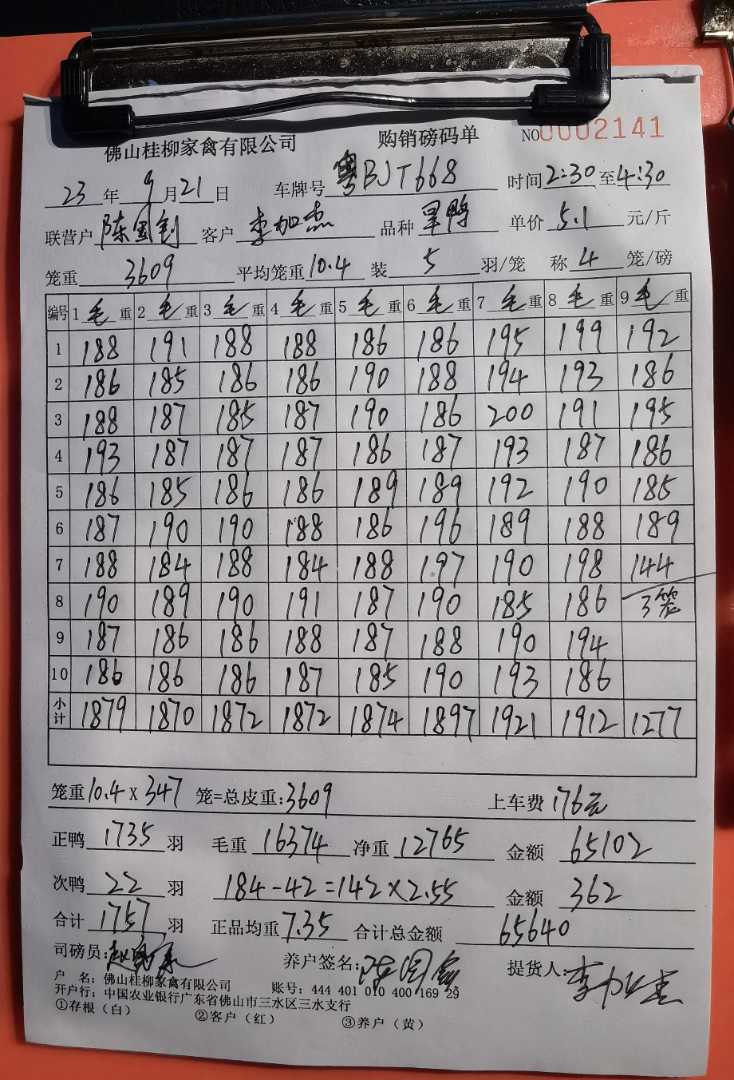 佛山桂柳家禽有限公司 购销磅码单 NO 0002141
23 年 9 月 21 日 车牌号 粤BJT668 时间 2:30 至 4:30
联营户 陈国钊 客户 李加杰 品种 旱鸭 单价 5.1 元/斤
笼重 3609 平均笼重 10.4 装 5 羽/笼 称 4 笼/磅
编号 1 毛 重 2 毛 重 3 毛 重 4 毛 重 5 毛 重 6 毛 重 7 毛 重 8 毛 重 9 毛 重
1 188 191 188 188 186 186 195 199 192
2 186 185 186 186 190 188 194 193 186
3 188 187 185 187 190 186 200 191 195
4 193 187 187 187 186 187 193 187 186
5 186 185 186 186 189 189 192 190 185
6 187 190 190 188 186 196 189 188 189
7 188 184 188 184 188 197 190 198 144
8 190 189 190 191 187 190 185 186 3笼
9 187 186 186 188 187 188 190 194
10 186 186 186 187 185 190 193 186
小计 1879 1870 1872 1872 1874 1897 1921 1912 1277
笼重 10.4 x 347 笼=总皮重: 3609 上车费 176元
正鸭 1735 羽 毛重 16374 净重 12765 金额 65102
次鸭 22 羽 184-42=142×2.55 金额 362
合计 1757 羽 正品均重 7.35 合计总金额 65640
司磅员: 养户签名: 提货人: 李加杰
户 名: 佛山桂柳家禽有限公司 账号: 444 401 010 400 169 29
开户行: 中国农业银行广东省佛山市三水区三水支行
①存根（白） ②客户（红） ③养户（黄）